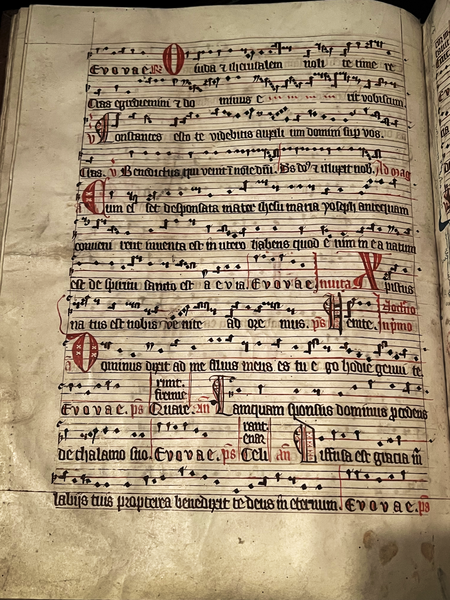 Evovae. R O iuda & iherusalem noli te time re
Cras egrediemini & do minus e rit vobiscum.
V Constantes esto te videbitis auxili um domini sup vos.
Cras. V Benedictus qui venit i noie dni. Ds do' & illuxit nob. Ad mag
Cum es set desponsata mater ihesu maria yoseph antequam
conveni rent inventa est in utero habens quod e nim in e a natum
est de spiritu sancto est a e v i a. Evovae. invita Xpistus
na tus est nobis ve nite ad ore mus. ps Venite.
Dominus dixit ad me filius meus es tu e go hodie genui te
Evovae. ps Quare. fremue rint. an Tamquam sponsus dominus pcedens
de chalamo suo. Evovae. ps Celi enar rant. an Diffusa est gracia in
labijs tuis propterea benedixit te deus in eternum. Evovae. ps